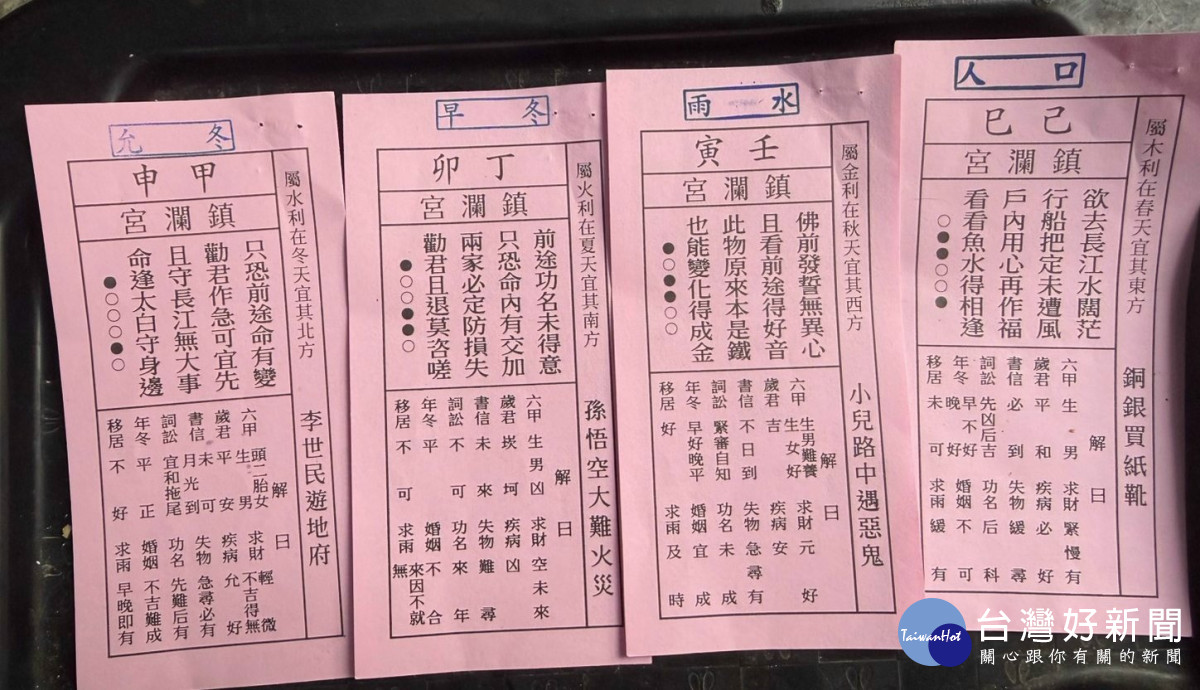 口人
己巳
鎮瀾宮
屬木利在春天宜其東方
銅銀買紙靴
欲去長江水闊茫
行船把定未遭風
戶內用心再作福
看看魚水得相逢
○●●○○●
解曰
六甲生男
歲君平和
書信必到
詞訟先凶后吉
年冬早不好晚好
移居未可
求財緊慢有
疾病必好
失物緩尋
功名后科
婚姻不可
求雨緩有
水雨
壬寅
鎮瀾宮
屬金利在秋天宜其西方
小兒路中遇惡鬼
佛前發誓無異心
且看前途得好音
此物原來本是鐵
也能變化得成金
●○●●○○
解曰
六甲生男難養生女好
歲君吉
書信不日到
詞訟緊審自知
年冬早好晚平
移居好
求財元好
疾病安
失物急尋有
功名未成
婚姻宜成
求雨及時
冬早
丁卯
鎮瀾宮
屬火利在夏天宜其南方
孫悟空大難火災
前途功名未得意
只恐命內有交加
兩家必定防損失
勸君且退莫咨嗟
●○○●●○
解曰
六甲生男凶
歲君崁坷
書信未來
詞訟不可
年冬平
移居不可
求財空未來
疾病凶
失物難尋
功名來年
婚姻不合
求雨來因不就無
冬允
甲申
鎮瀾宮
屬水利在冬天宜其北方
李世民遊地府
只恐前途命有變
勸君作急可宜先
且守長江無大事
命逢太白守身邊
●○○○●○
解曰
六甲頭二胎女生男
歲君平安
書信月光到未可
詞訟宜和拖尾
年冬平正
移居不好
求財輕微不吉得無
疾病允好
失物急尋必有
功名先難后有
婚姻不吉難成
求雨早晚即有
TaiwanHot
台灣好新聞
關心跟你有關的新聞